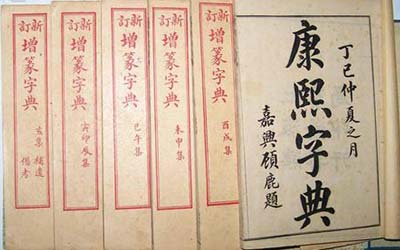 丁巳仲夏之月
康熙字典
嘉興顧鹿題
新訂
增篆字典
酉戌集
新訂
增篆字典
未申集
新訂
增篆字典
巳午集
新訂
增篆字典
寅卯辰集
新訂
增篆字典
亥集
補遺
備考